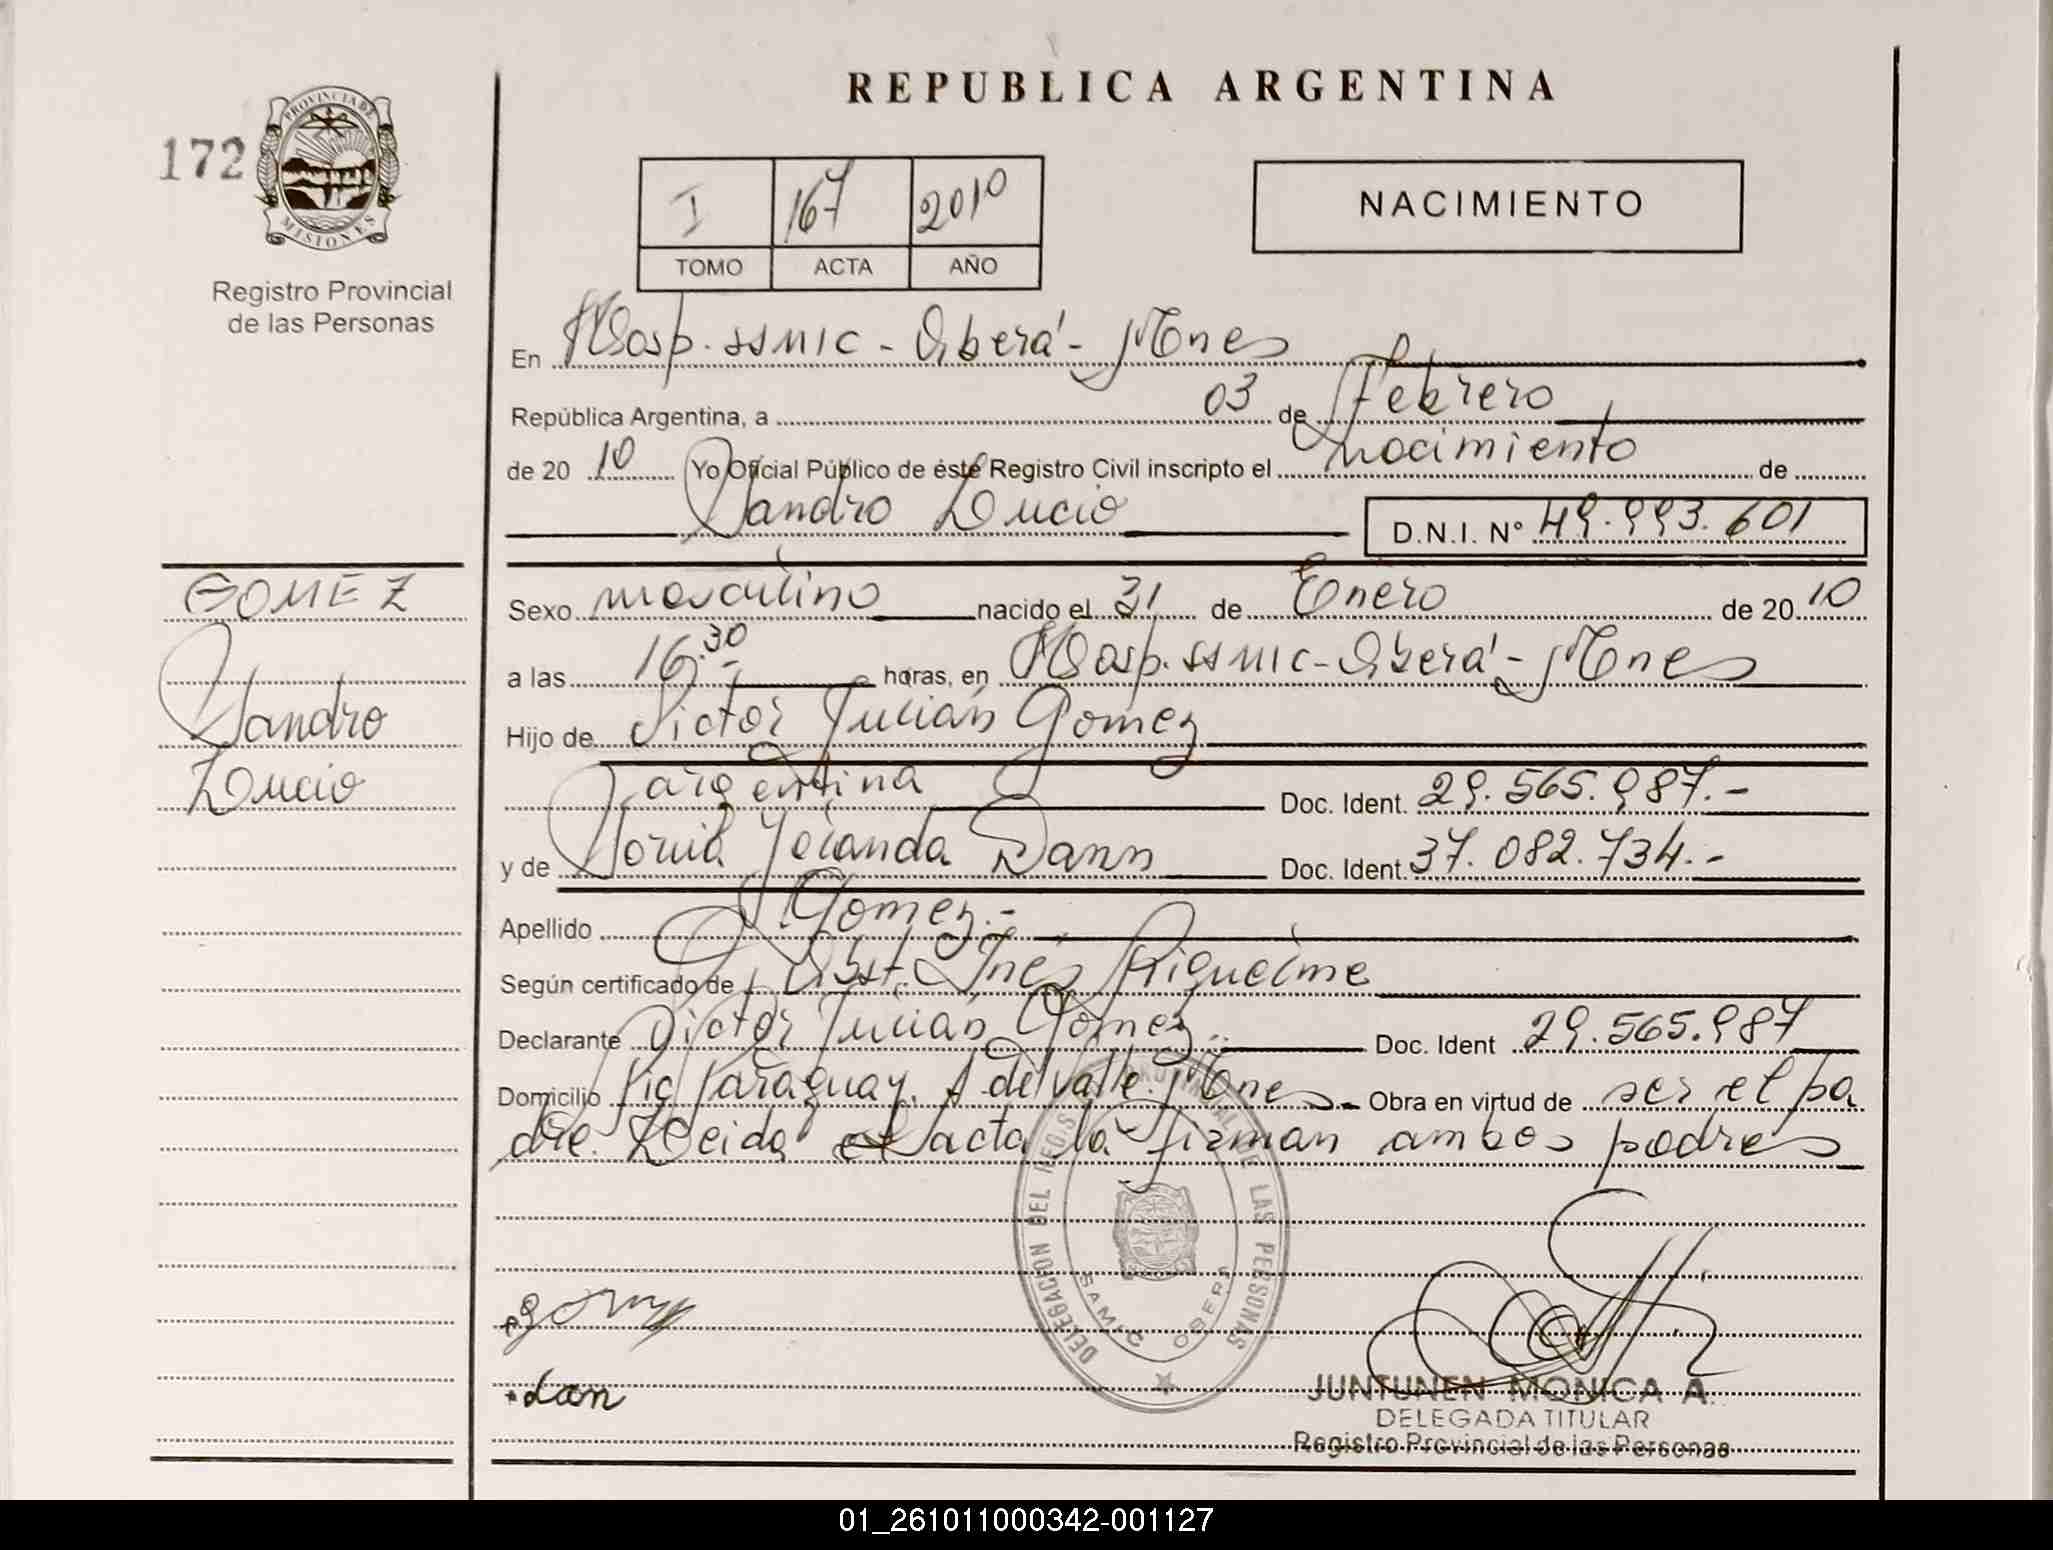 REPUBLICA ARGENTINA
172
PROVINCIA DE
MISIONES
Registro Provincial
de las Personas
I 167 2010
TOMO ACTA AÑO
NACIMIENTO
En Hosp. SSMIC - Oberá - Mnes
República Argentina, a 03 de Febrero
de 20 10 Yo Oficial Público de éste Registro Civil inscripto el nacimiento de
Sandro Lucio D.N.I. Nº 49.993.601
GOMEZ
Sandro
Lucio
Sexo masculino nacido el 31 de Enero de 20 10
a las 16.30 horas, en Hosp. SSMIC - Oberá - Mnes
Hijo de Victor Julián Gomez
argentina Doc. Ident. 29.565.987.-
y de Yolanda Doc. Ident. 37.082.734.-
Apellido Gomez.-
Según certificado de Obst. Inés Riquelme
Declarante Victor Julián Gomez Doc. Ident 29.565.987
Domicilio Pic. Paraguay. A del valle. Mnes Obra en virtud de ser el pa
dre. Leida el acta la firman ambos padres
DELEGACION DEL REG. PROVINCIAL DE LAS PERSONAS
SAMIC OBERA
JUNTUNEN MONICA A.
DELEGADA TITULAR
Registro Provincial de las Personas
01_261011000342-001127